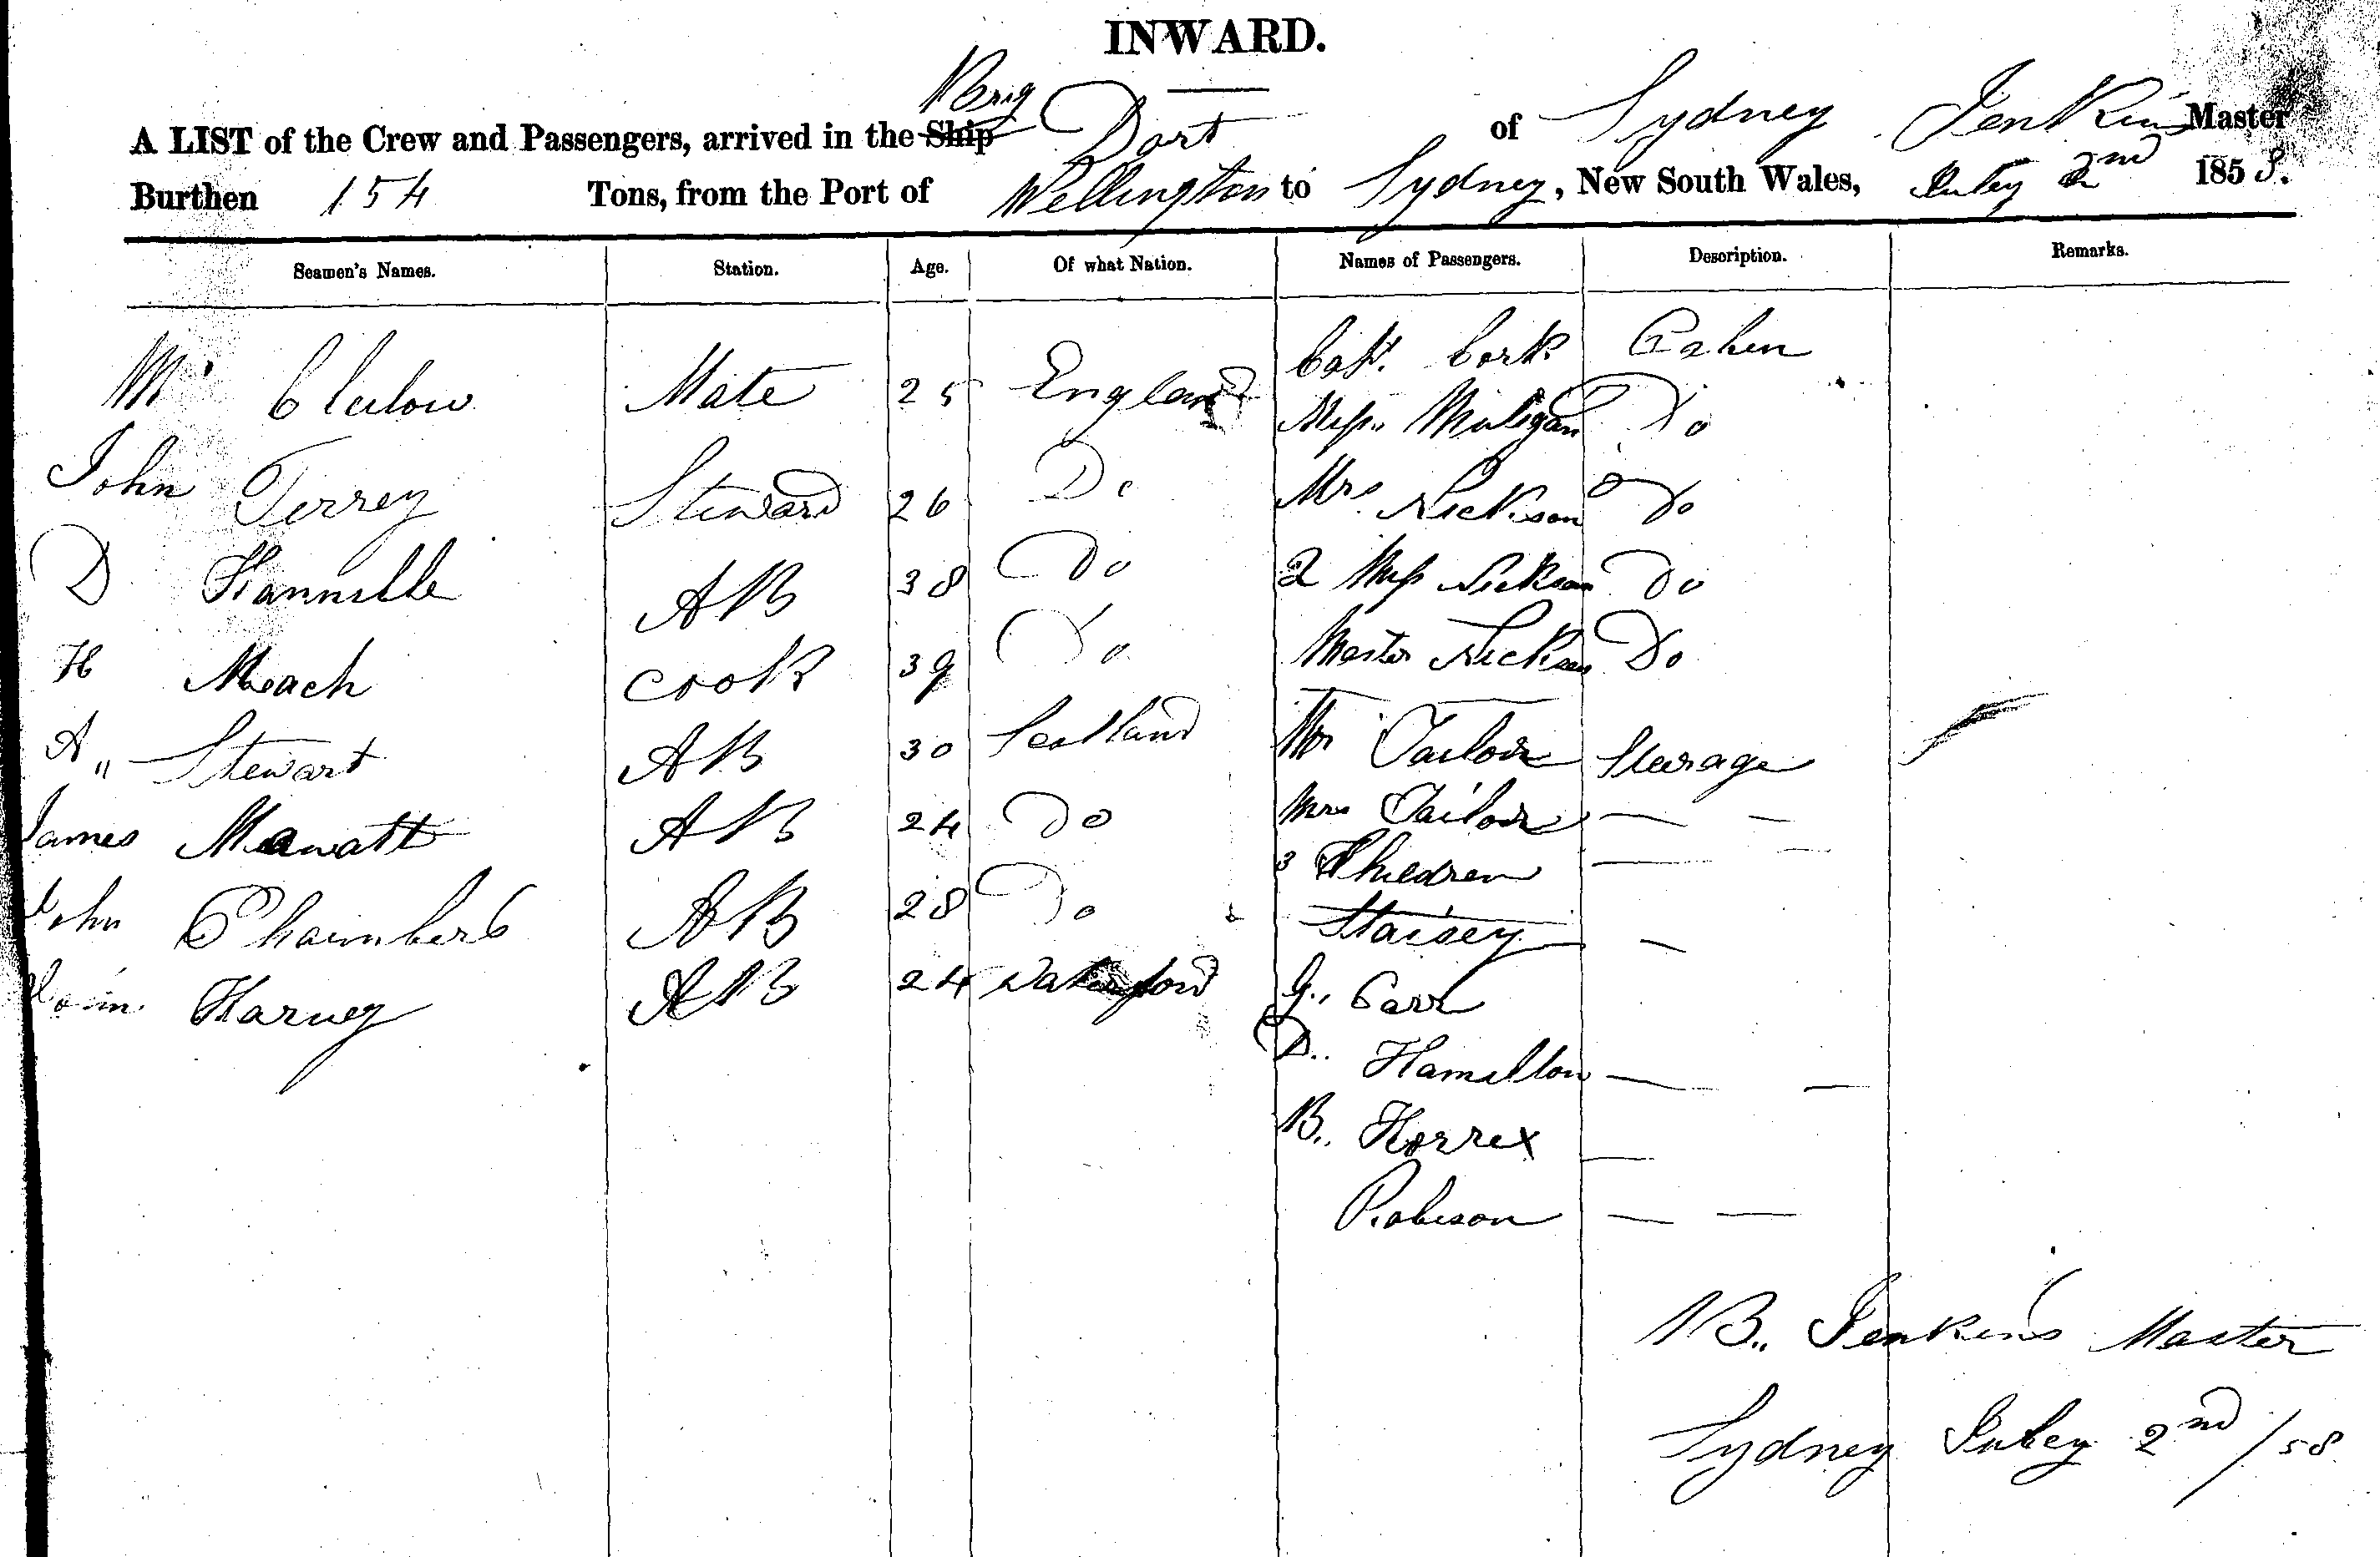 INWARD.
A LIST of the Crew and Passengers, arrived in the Ship Brig Dart of Sydney Jenkins Master
Burthen 154 Tons, from the Port of Wellington to Sydney, New South Wales, July 2nd 1858.
Seamen's Names. Station. Age. Of what Nation. Names of Passengers. Description. Remarks.
Mr Clulow Mate 25 England Capt. Cork Cabin
Miss Muligan Do
John Terrey Steward 26 Do Mrs Nickson Do
D Hannible AB 38 Do 2 Miss Nickson Do
H Meach Cook 39 Do Master Nickson Do
A Stewart AB 30 Scotland Mr Tailor Stearage
James AB 24 Do Mrs Tailor — —
3 Children — —
John Chambers AB 28 Do Staisey — —
John Harvey AB 24 Waterford G. Carr
D. Hamilton — —
B. Horrex —
Robison — —
B. Jenkins Master
Sydney July 2nd /58